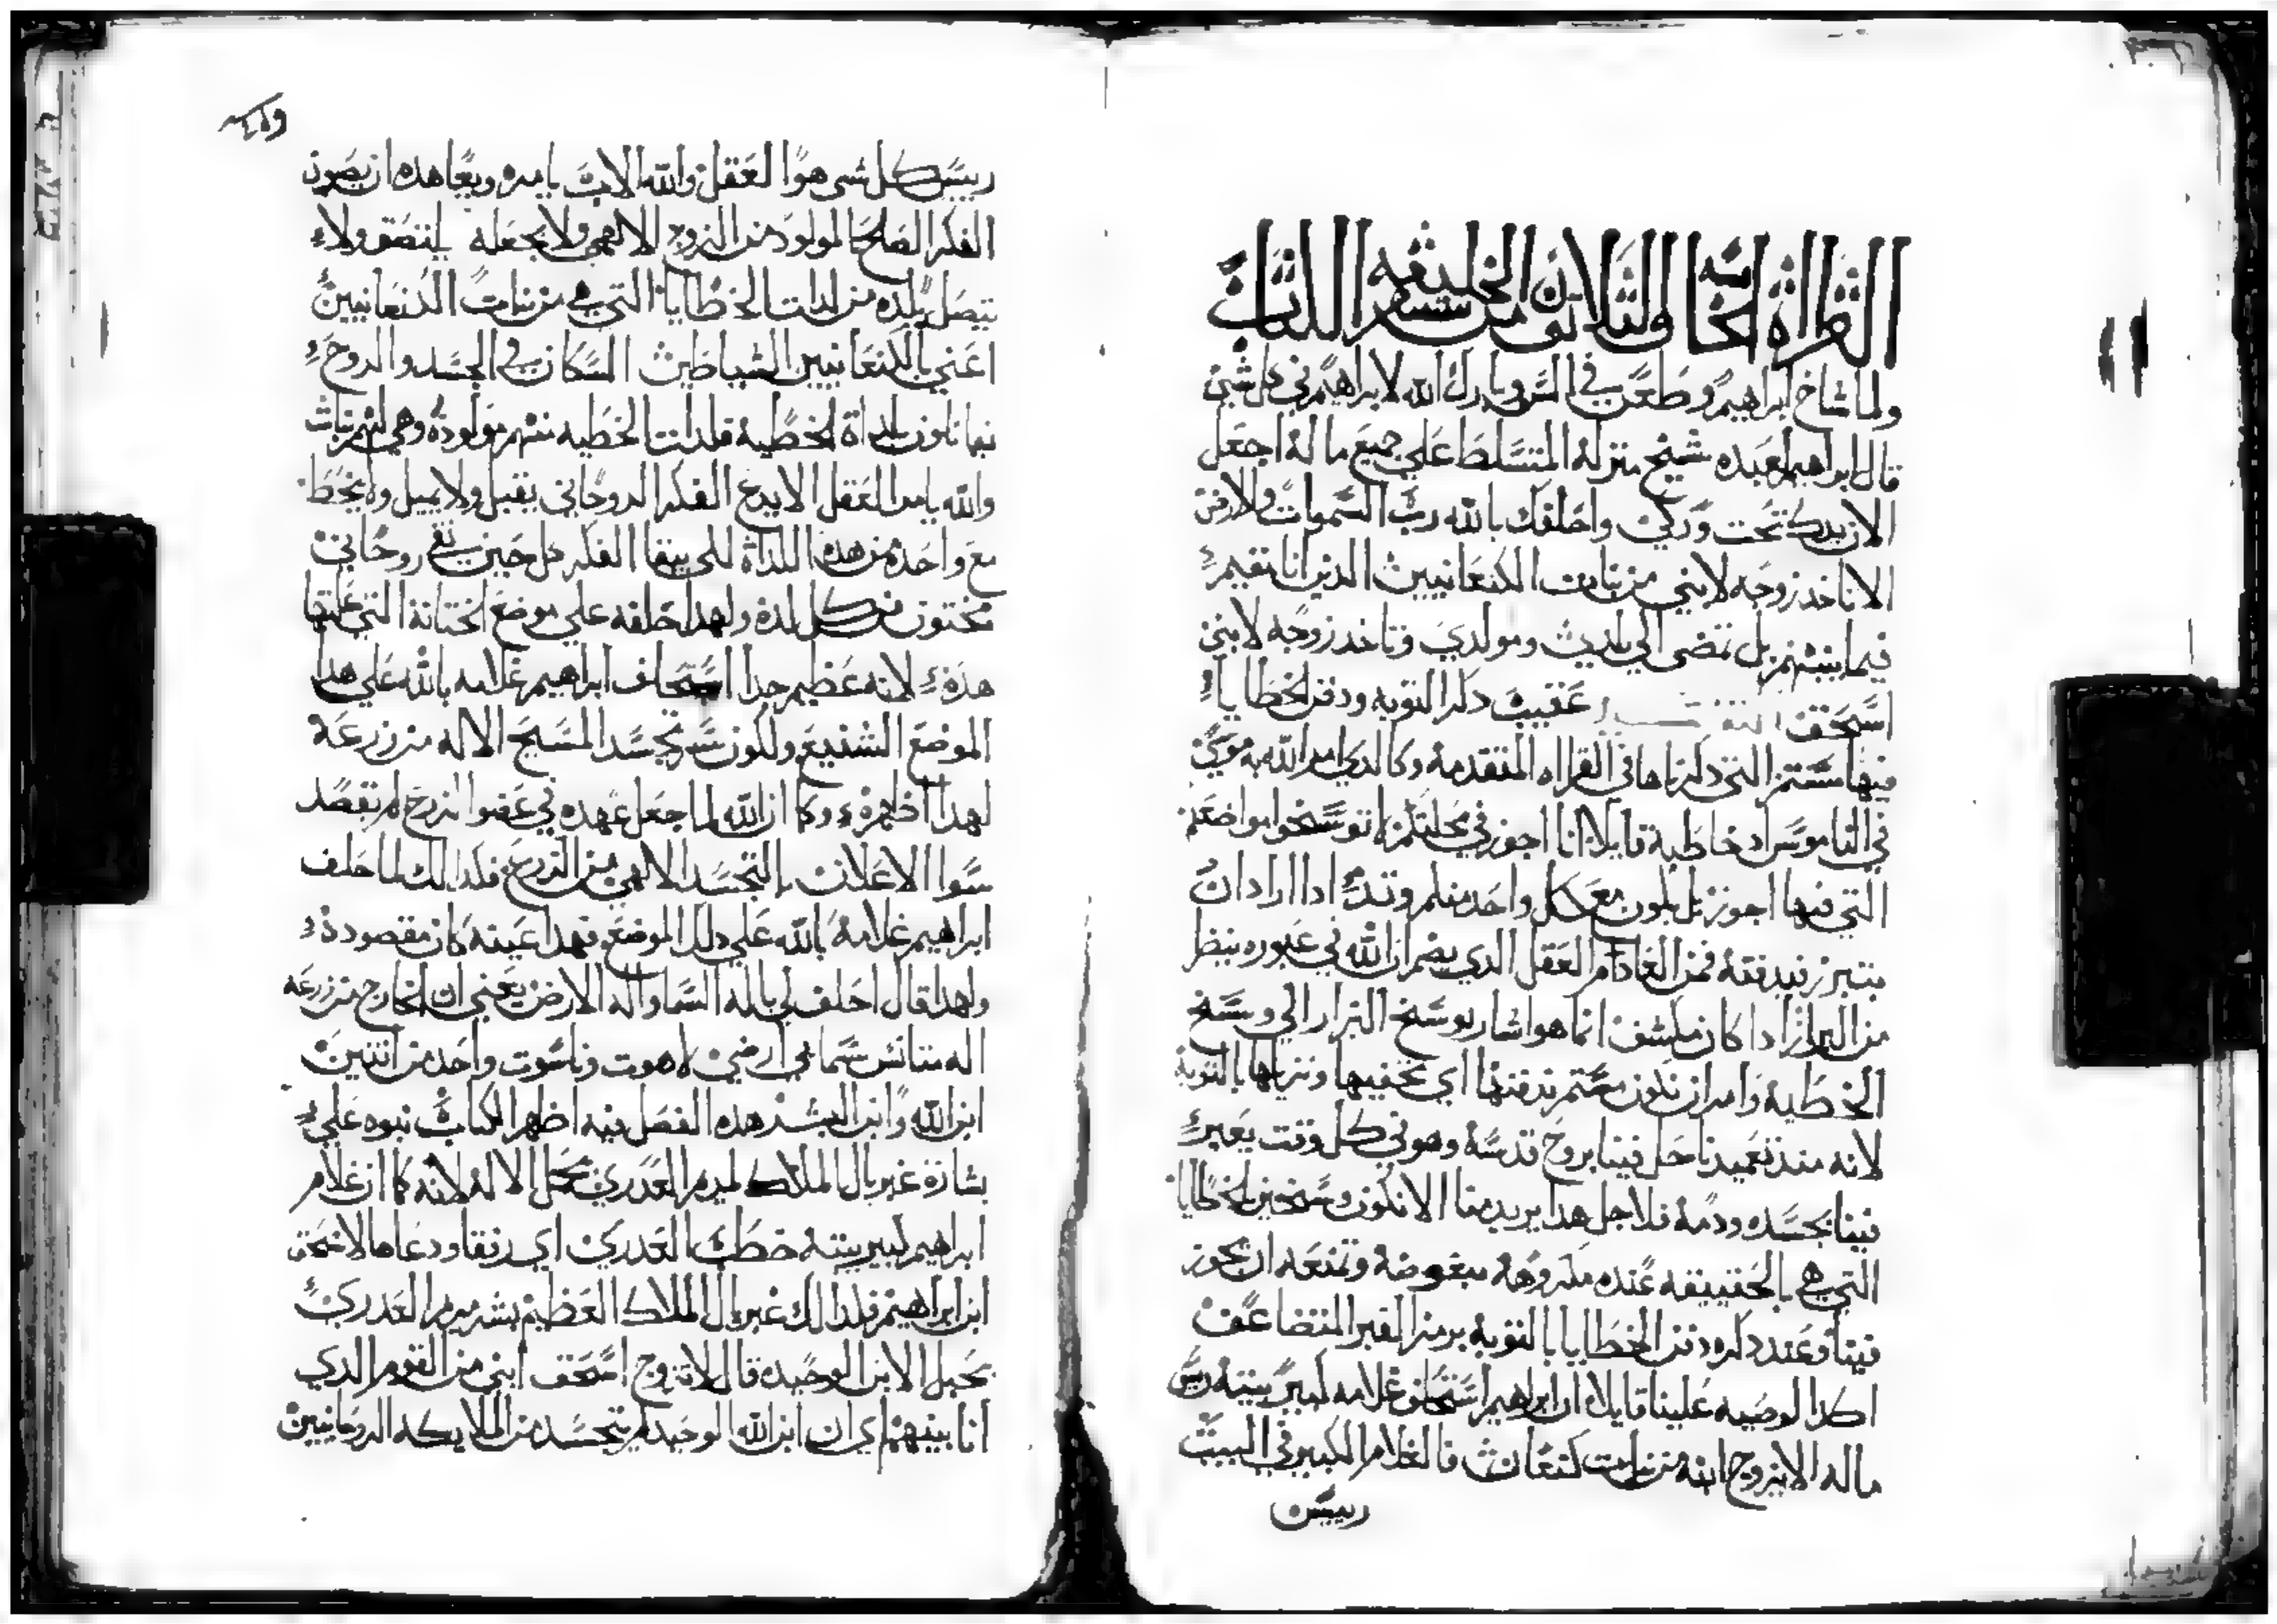 القراة الخامسه والثلاثون من سفر الخليقه
ولما شاخ ابراهيم وطعن في السن وبارك الله لابراهيم في كل شي
قال ابراهيم لعبده شيخ منزله المتسلط علي جميع ماله اجعل
الان يدك تحت وركي واحلفك بالله رب السموات والارض
الا تاخد زوجه لابني من بنات الكنعانيين الدين انا مقيم
فيما بينهم بل تمضي الي بلدي ومولدي وتاخد زوجه لابني
اسحق عقيب دكر التوبه ودفن الخطايا
التي دكرناها في القراه المتقدمه وكالدي امر الله به موسي
في الناموس اد خاطبه قايلا انا اجوز في محلتكم لا توسخوا مواضعكم
التي فيها اجوز بل يكون مع كل واحد منكم وتد ادا اراد ان
يتبرز يدفنه فمن العادم العقل الدي يضن ان الله في عبوره ينظر
من البراز ادا كان مكشف انما هو اشار بوسخ البراز الي وسخ
الخطيه وامر ان تكون معكم تدفنها اي تخفيها وتزيلها بالتوبه
لانه مند تعميدنا حل فينا بروح قدسه وهو في كل وقت يعبر
فينا بجسده ودمه فلاجل هدا يريد منا الا نكون وسخين بالخطايا
التي هي بالحقيقه عنده مكروهه مبغوضه وتمنعه ان يجوز
فينا وعند دكره دفن الخطايا بالتوبه برمز القبر المتضاعف
اكد الوصيه علينا قايلا ان ابراهيم استحلف غلامه كبير بيته ريس
ماله الا يزوج ابنه من بنات كنعان فالغلام الكبير في البيت
رييس
رييس كل شي هو العقل والله الاب يامره ويعاهده ان يصون
الفكر الصالح المولود من الروح الالهي ولا يجعله يلتصق ولا
يتصل بلده من لدات الخطايا التي هي من بنات الكنعانيين
اعني بالكنعانيين الشياطين السكان في الجسد والروح
فدات الخطيه منهم مولوده وهي لهم بنات
والله يامر العقل الا يدع الفكر الروحاني يقبل ولا يميل ولا يختلط
مع واحده من هده اللداة لكي يبقا الفكر كل حين نقي روحاني
مختون من كل لده ولهدا حلفه علي موضع الختانة التي علتها
هده لانه عظيم جدا استحلف ابراهيم غلامه بالله علي هدا
الموضع الشنيع ولكون سر تجسد المسيح الاله من زرعه
لهدا اظهره وكما ان الله لما جعل عهده في عضو الزرع لم يقصد
سوا الاعلان بالتجسد الالهي من الزرع فكدالك لما حلف
ابراهيم غلامه بالله علي دلك الموضع فهدا عينه كان مقصوده
ولهدا قال احلف لي باله السما واله الارض يعني ان الخارج من زرعه
اله متانس سماي ارضي لاهوت وناسوت واحد من اتنين
ابن الله وابن البشر هده الفصل فيه اظهر الكتاب نبوه علي
بشارة غبريال الملاك لمريم العدري بحبل الاله لانه كما ان غلام
ابراهيم كبير بيته خطب العدري اي رفقا ودعاها لاسحق
ابن ابراهيم فكدالك غبريال الملاك العظيم بشر مريم العدري
بحبل الابن الوحيد قال لا تزوج اسحق ابني من القوم الدي
انا بينهم اي ان ابن الله الوحيد لم يتجسد من الملايكه الروحانيين